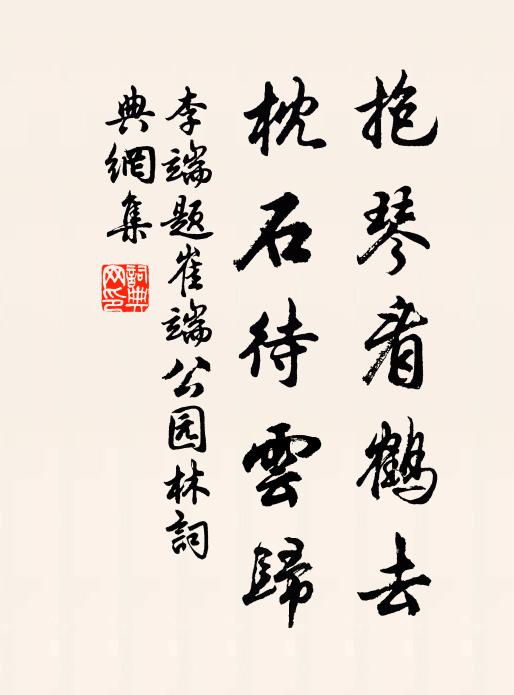 抱琴看鶴去
枕石待雲歸
李端題崔端公园林詞
典網集
詞典
网印